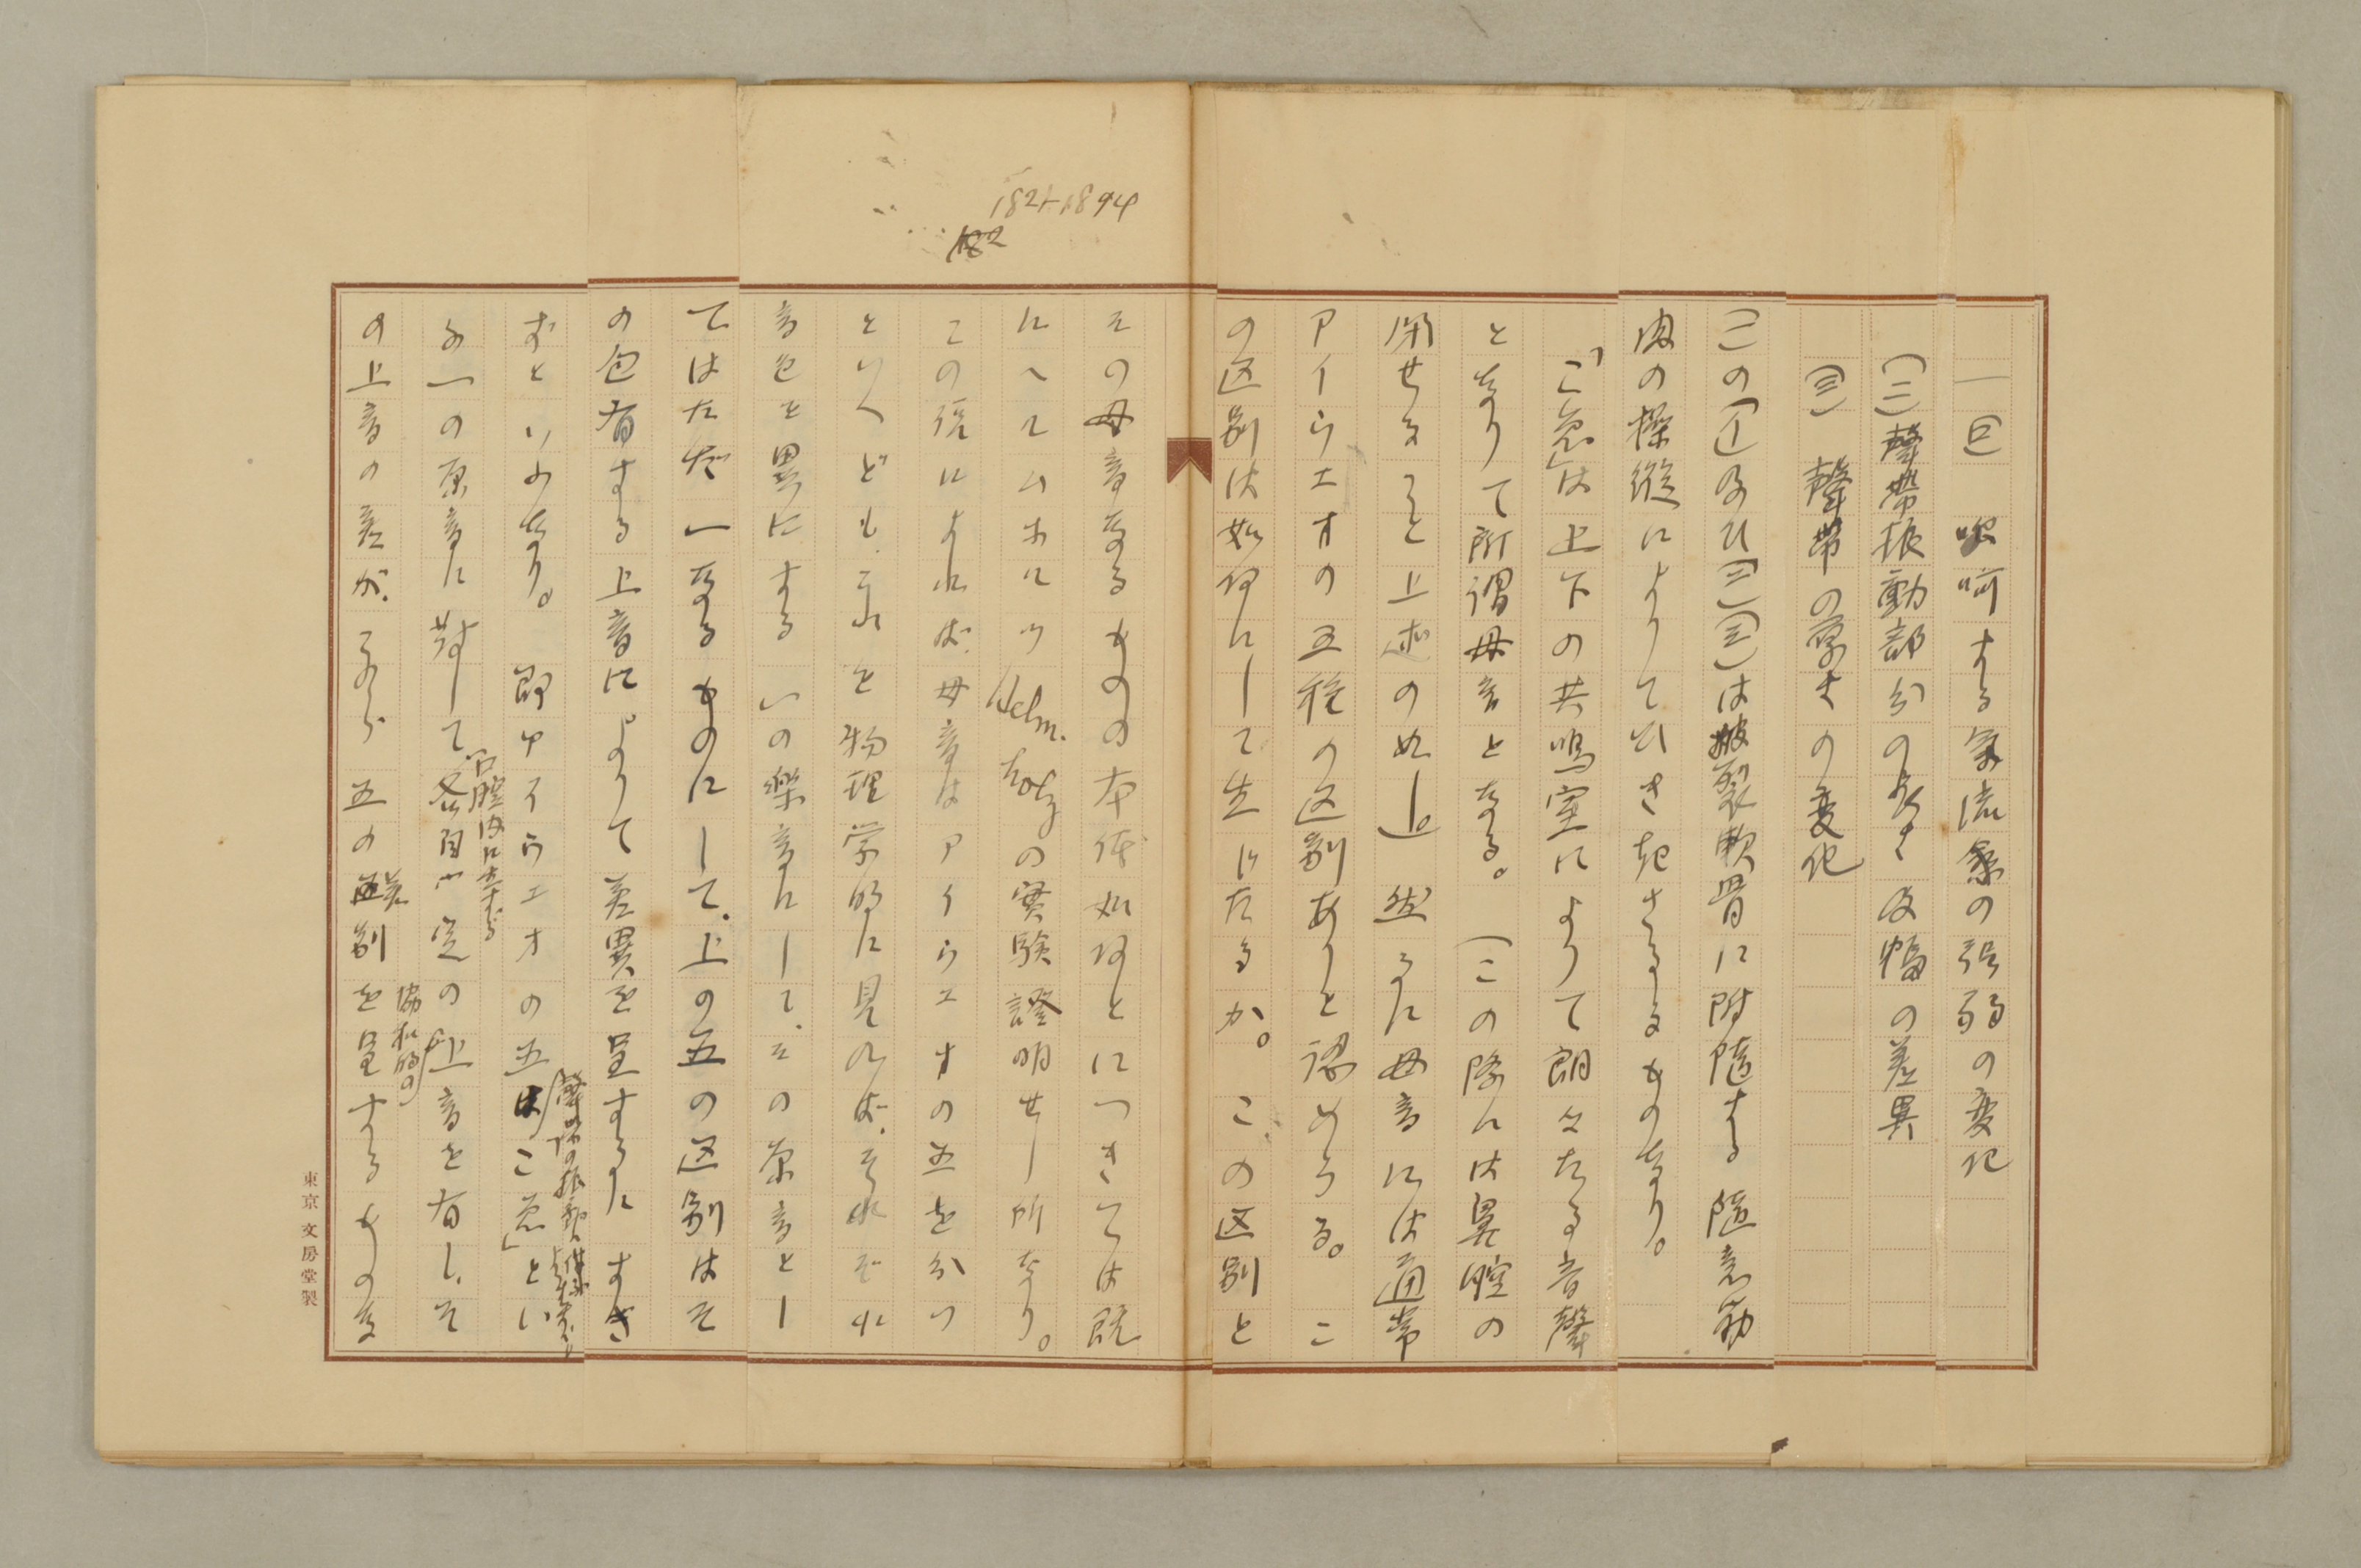 (一) 呼呵する気流量の強弱の変化
(二)聲帯振動部分の長さ及幅の差異
(三) 聲帯の厚さの変化
(一)の(イ)及ひ(二)(三)は披裂軟骨に附随する随意筋
肉の操縦によりてひき起さるるものなり。
「こゑ」は上下の共鳴室によりて朗々たる音聲
となりて所謂母音となる。(この際には鼻腔の
閉せること上述の如し。然るに母音には通常
アイウエオの五種の区別ありと認めらる。こ
の区別は如何にして生じたるか。この区別と
1821-1894
182
その母音なるものの本体如何とにつきては既
にヘルムホルツHelm.holtzの実験證明せし所なり。
この説によれば母音はアイウエオの五を分つ
といへども、これを物理学的に見れば、それぞれ
音色を異にする一の樂音にして、その原音とし
てはただ一なるものにして、上の五の区別はそ
の包有する上音によりて差異を呈するにすぎ
ずといふなり。即アイウエオの五はこゑ」とい
聲帯の振動
ふ一の原音に対して各自一定の上音を有し、そ
口腔内に生ずる
協和的の
の上音の差が、これら五の差別を呈するものな
東京文房堂製